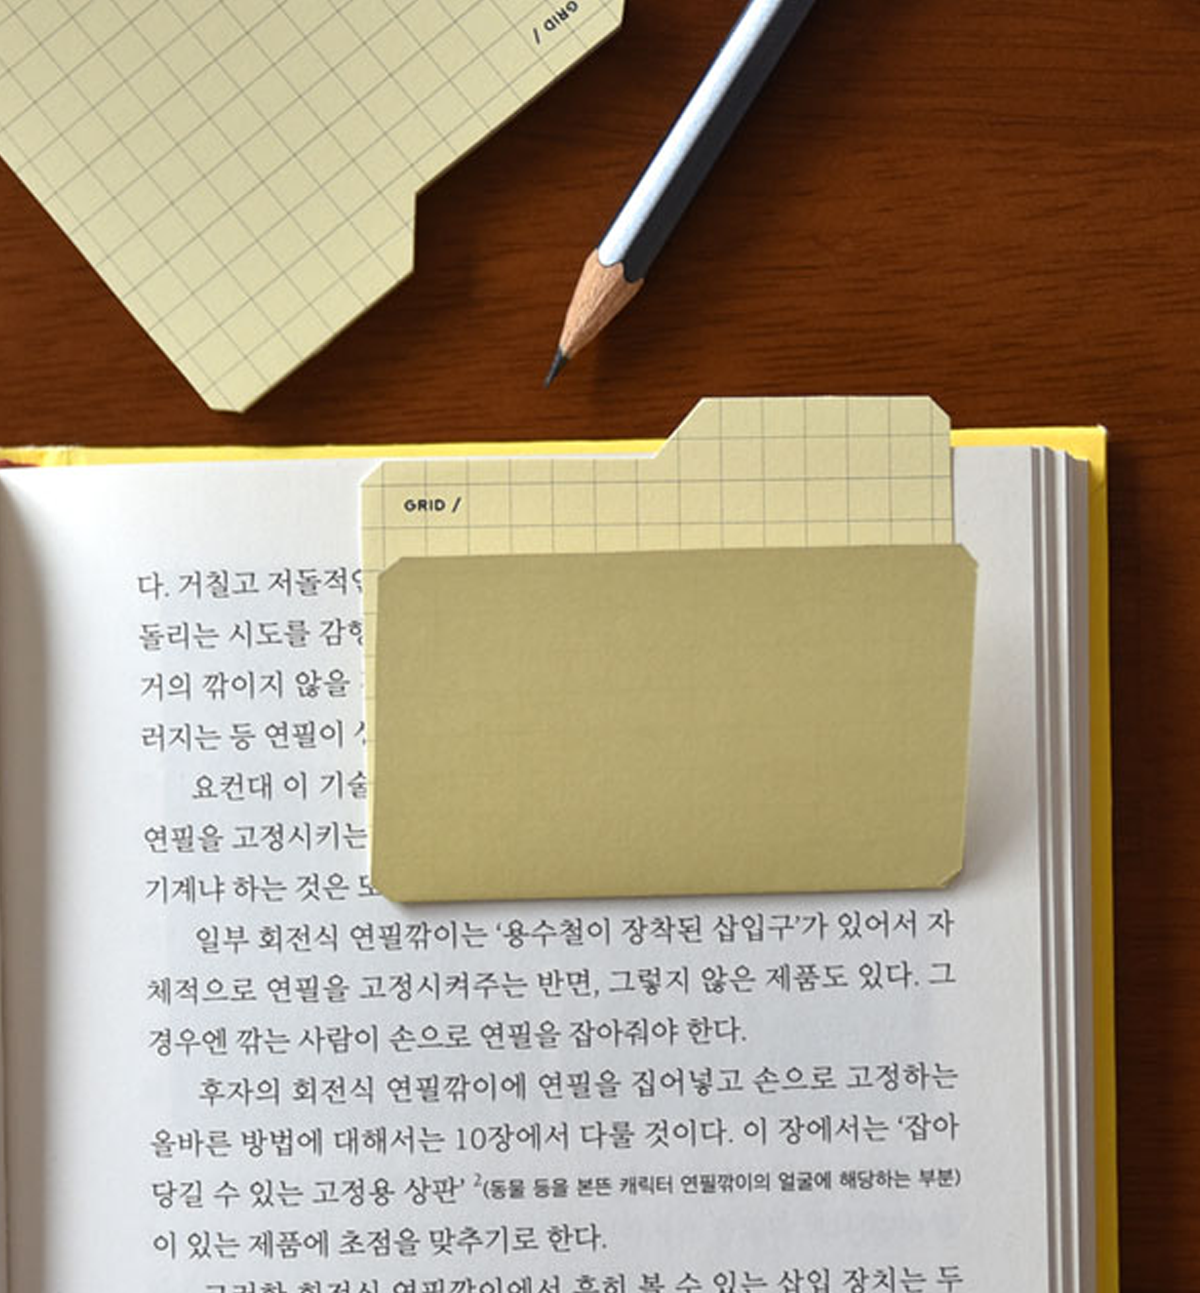 GRID /
GRID /
다. 거칠고
돌리는 시도를
거의 깎이지 않을
러지는 등 연필이
요컨대 이 기술
연필을 고정시키는
기계냐 하는 것은
일부 회전식 연필깎이는 ‘용수철이 장착된 삽입구’가 있어서 자
체적으로 연필을 고정시켜주는 반면, 그렇지 않은 제품도 있다. 그
경우엔 깎는 사람이 손으로 연필을 잡아줘야 한다.
후자의 회전식 연필깎이에 연필을 집어넣고 손으로 고정하는
올바른 방법에 대해서는 10장에서 다룰 것이다. 이 장에서는 ‘잡아
당길 수 있는 고정용 상판’ 2(동물 등을 본뜬 캐릭터 연필깎이의 얼굴에 해당하는 부분)
이 있는 제품에 초점을 맞추기로 한다.
그러한 회전식 연필깎이에서 흔히 볼 수 있는 삽입 장치는 두